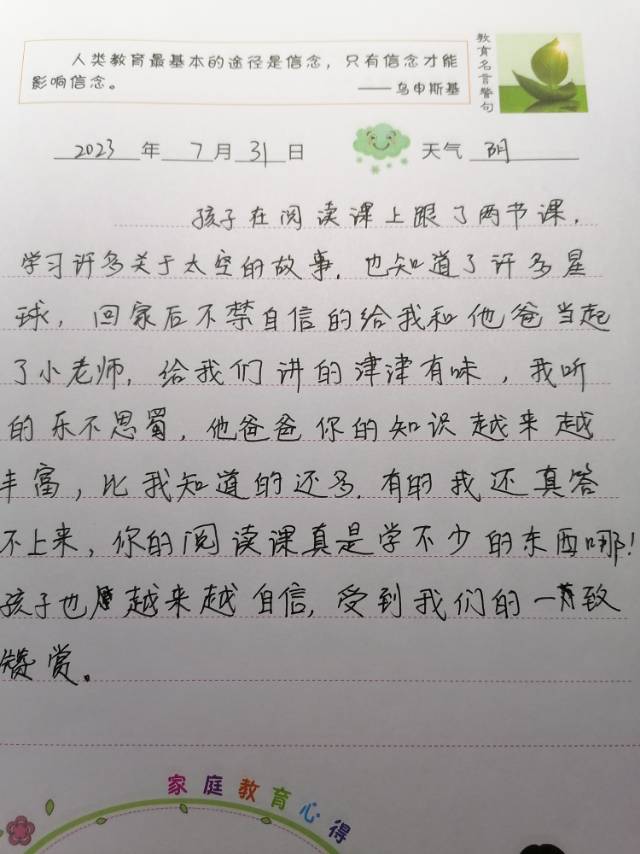 人类教育最基本的途径是信念，只有信念才能
影响信念。
——乌申斯基
教育名言警句
2023 年 7 月 31 日 天气 阴
孩子在阅读课上跟了两节课，
学习许多关于太空的故事，也知道了许多星
球，回家后不禁自信的给我和他爸当起
了小老师，给我们讲的津津有味，我听
的乐不思蜀，他爸爸你的知识越来越
丰富，比我知道的还多，有的我还真答
不上来，你的阅读课真是学不少的东西哪！
孩子也越来越自信，受到我们的一致
赞赏。
家庭教育心得